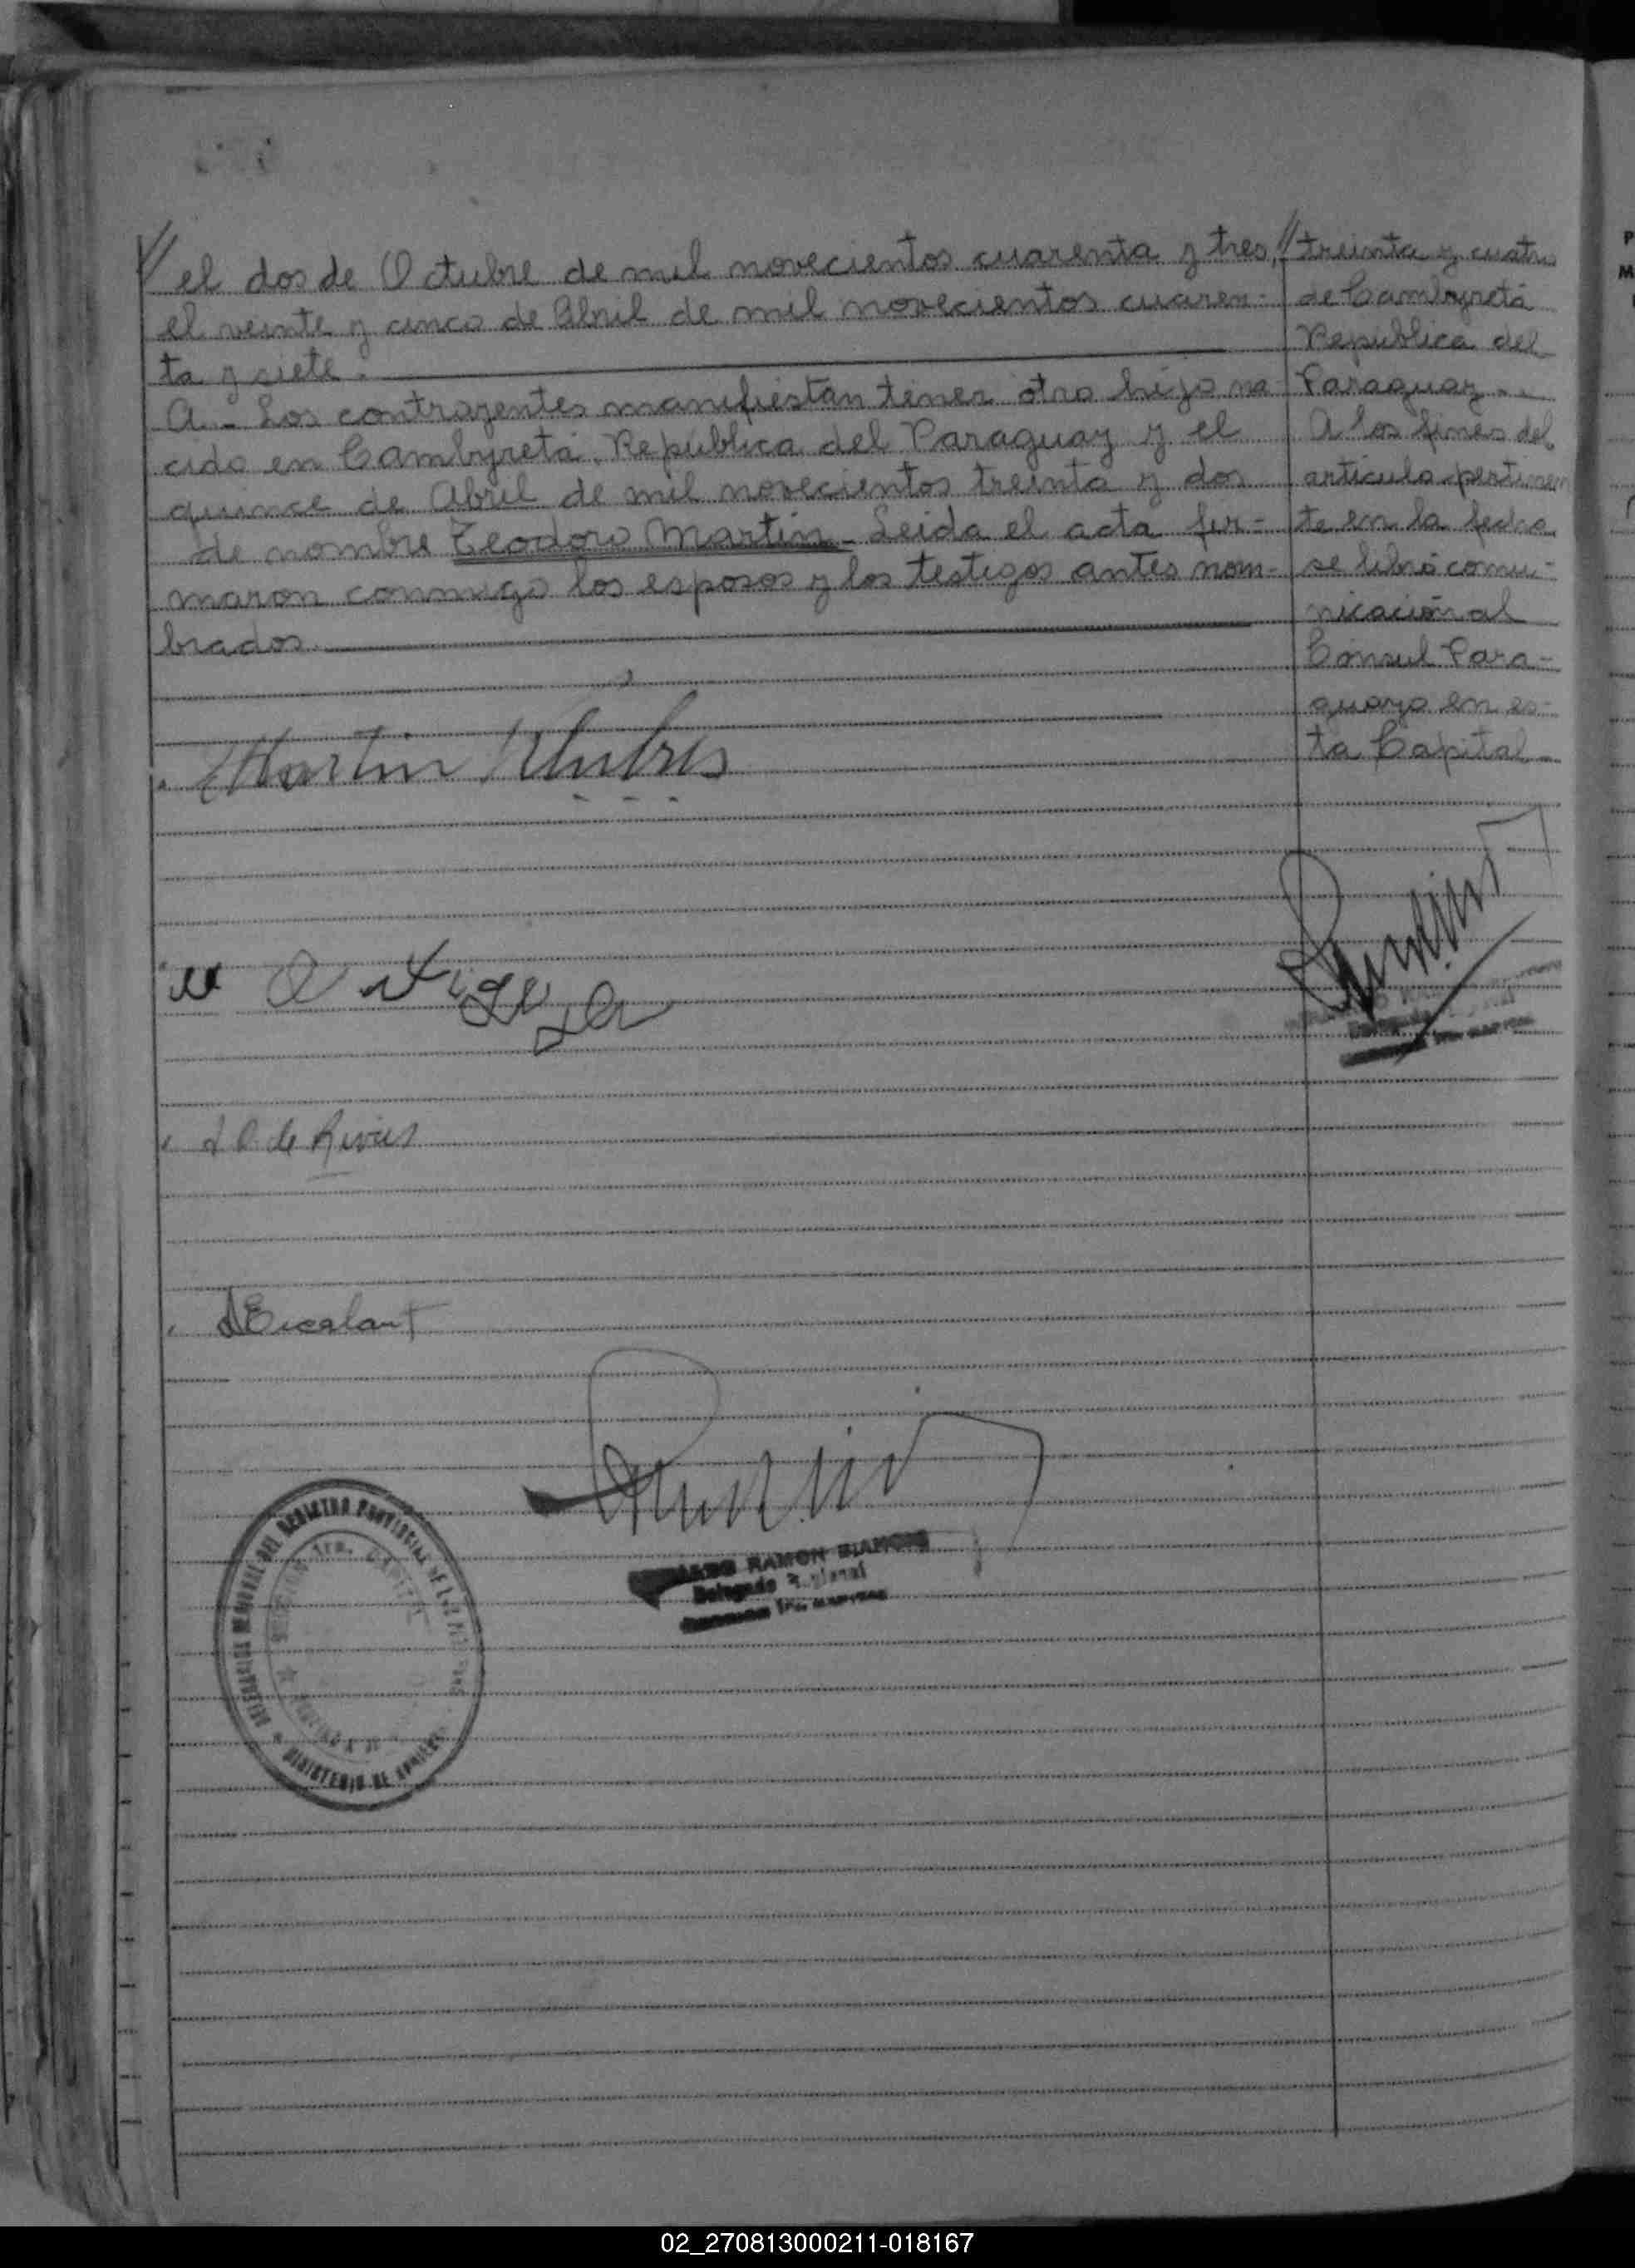 // el dos de Octubre de mil novecientos cuarenta y tres,
el veinte y cinco de Abril de mil novecientos cuaren-
ta y siete.
A.- Los contrayentes manifiestan tener otro hijo na-
cido en Cambyretá. República del Paraguay y el
quince de Abril de mil novecientos treinta y dos
de nombre Teodoro Martín.- Leida el acta fir-
maron conmigo los esposos y los testigos antes nom-
brados.
Martin
// treinta y cuatro
de Cambyretá
República del
Paraguay..
A los fines del
artículo pertinen
te en la fecha
se libró comu-
nicación al
Cónsul Para-
guayo en es-
ta Capital.-
de Rivas
RAMON
Delegado Regional
DEL REGISTRO PROVINCIAL DE LAS PERSONAS
SECCION 1ra. CAPITAL
MINISTERIO DE
02_270813000211-018167